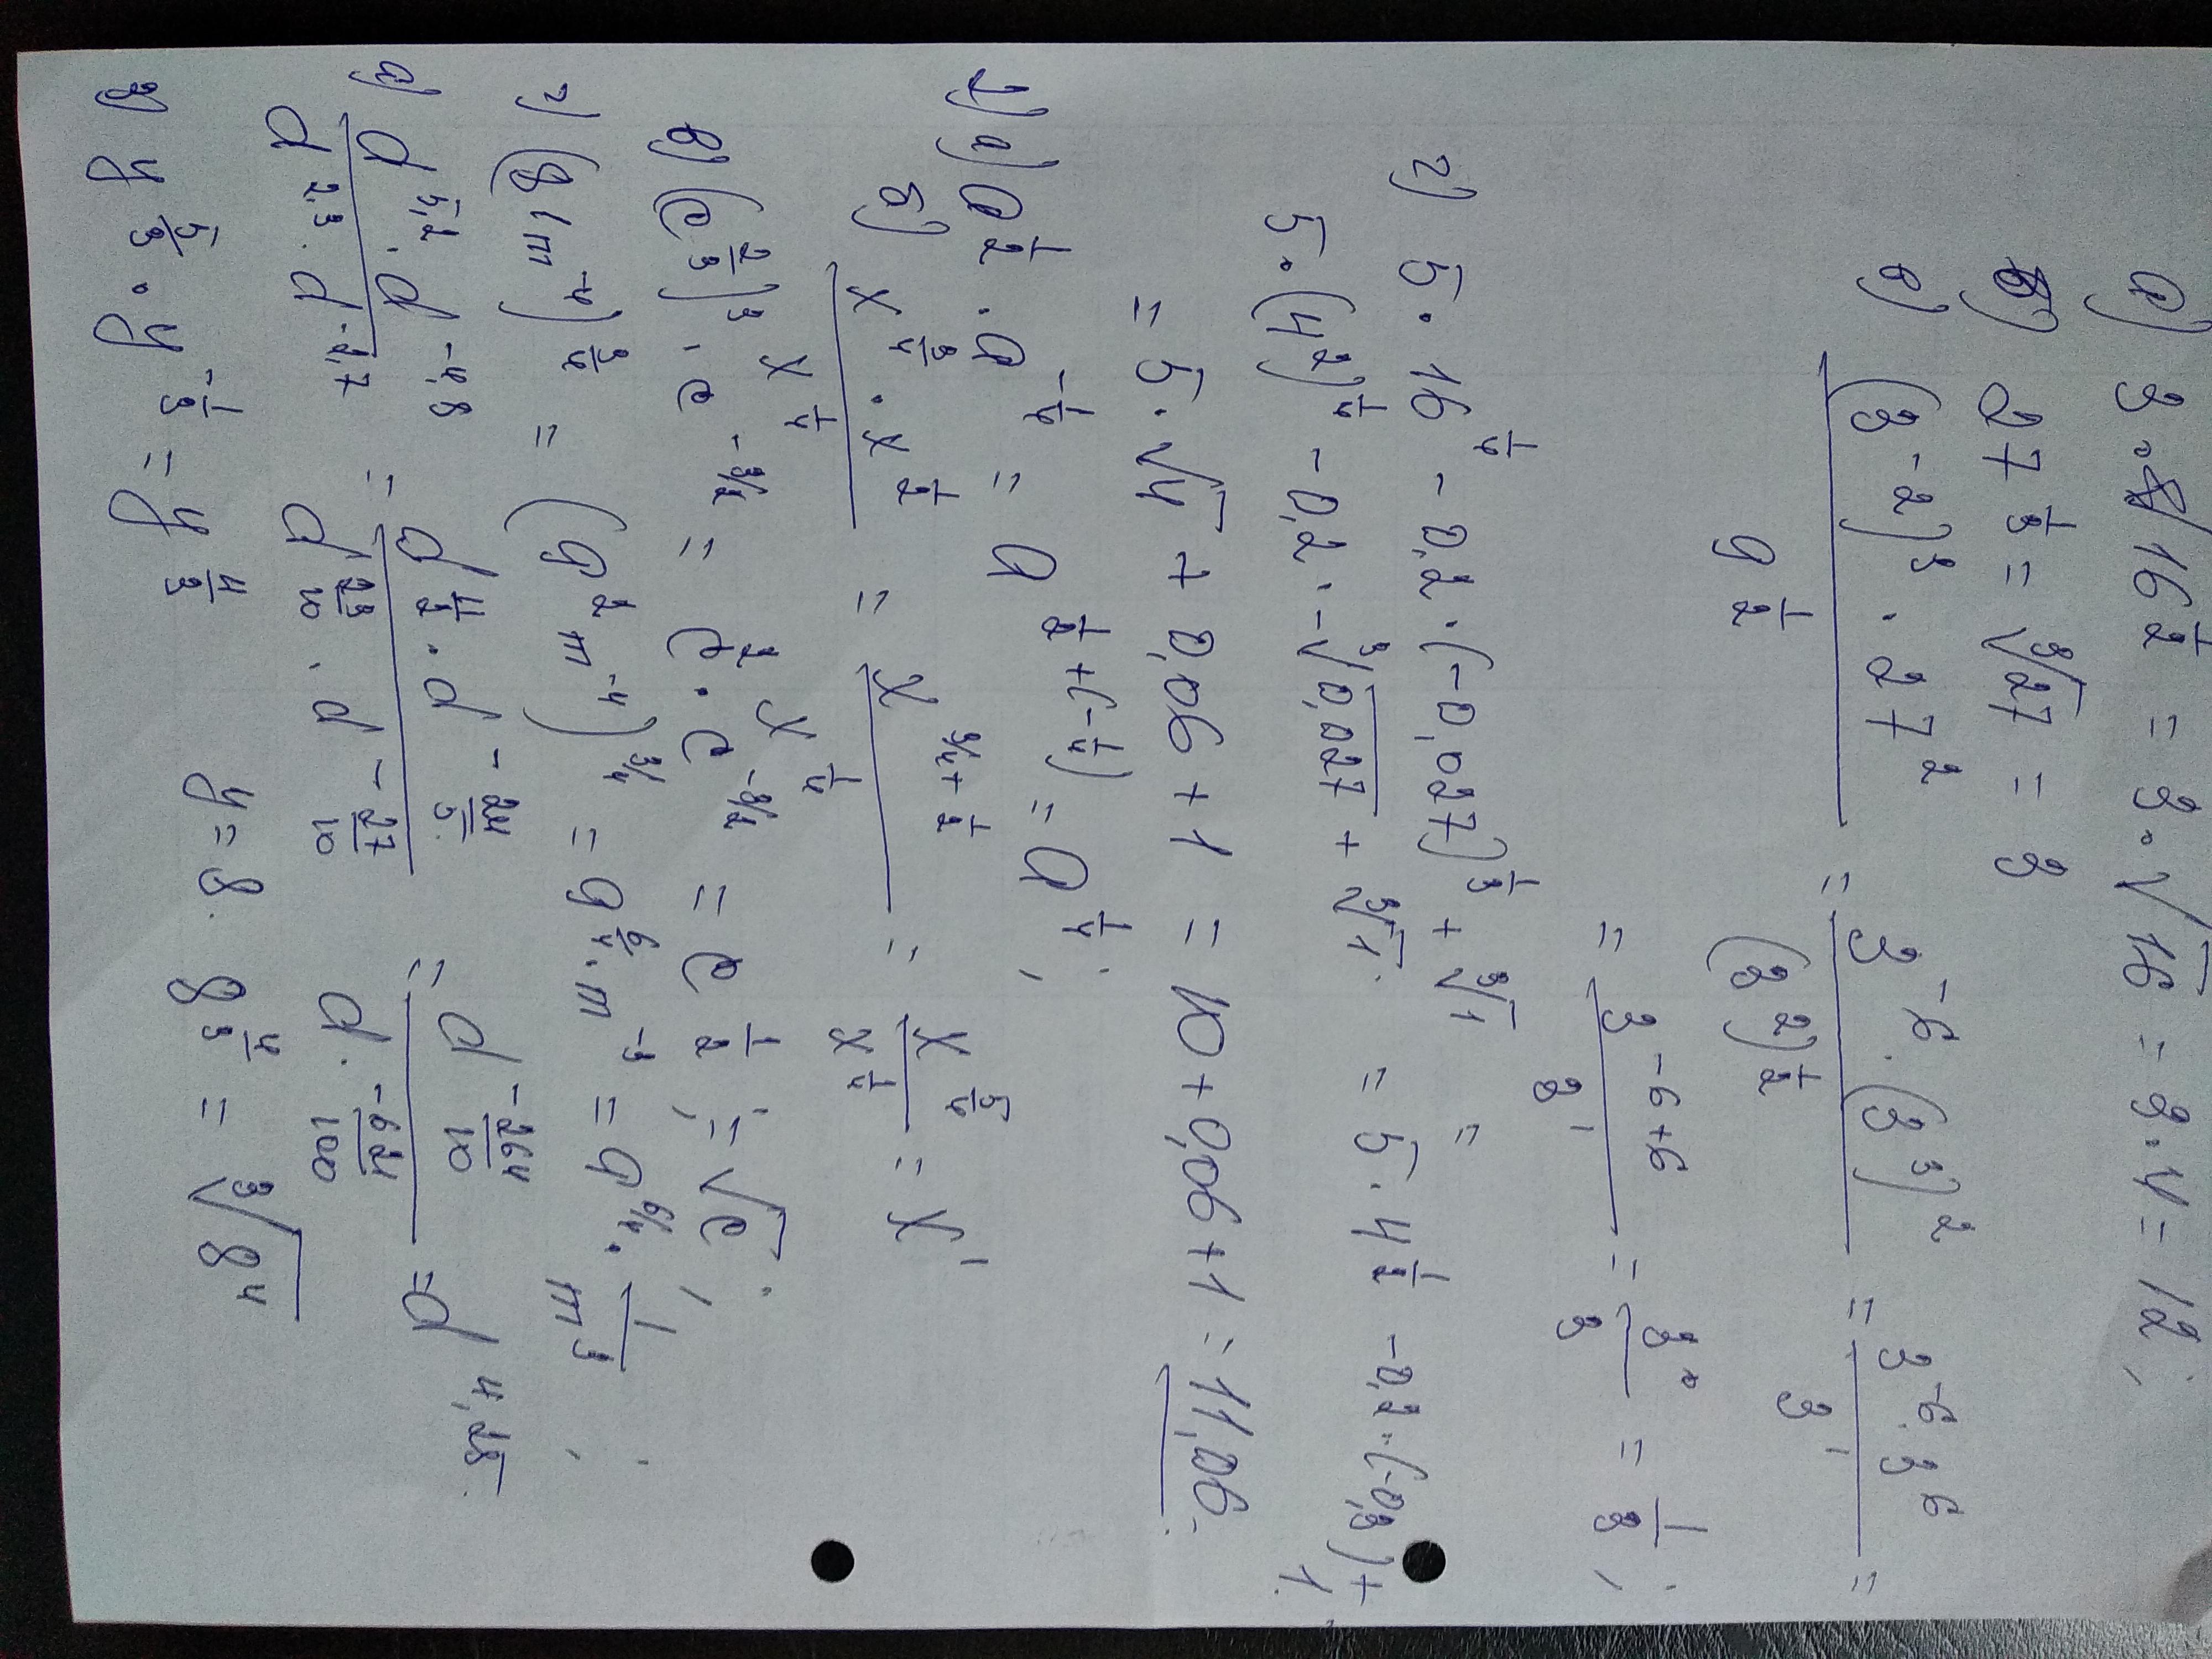 а) 3·16^(1/2) = 3·√16 = 3·4 = 12;
б) 27^(1/3) = ∛27 = 3
в) ((3^(-2))^3 · 27^2) / 9^(1/2) = (3^(-6) · (3^3)^2) / (3^2)^(1/2) = (3^(-6) · 3^6) / 3^1 =
= 3^(-6+6) / 3^1 = 3^0 / 3 = 1/3;
г) 5·16^(1/4) - 0,2·(-0,027)^(1/3) + ∛1 =
5·(4^2)^(1/4) - 0,2·-∛0,027 + ∛1 = 5·4^(1/2) - 0,2·(-0,3) + 1
= 5·√4 + 0,06 + 1 = 10 + 0,06 + 1 = 11,06.
2) а) a^(1/2) · a^(-1/4) = a^(1/2+(-1/4)) = a^(1/4);
б) (x^(3/4) · x^(1/2)) / x^(1/4) = x^(3/4+1/2) / x^(1/4) = x^(5/4) / x^(1/4) = x^1
в) (c^(2/3))^3 · c^(-3/2) = c^2 · c^(-3/2) = c^(1/2); = √c;
г) (81m^(-4))^(3/4) = (9^2 m^(-4))^(3/4) = 9^(6/4) · m^(-3) = 9^(6/4) · 1/m^3;
д) (d^(5,2) · d^(-4,8)) / (d^(2,3) · d^(-2,7)) = (d^(11/2) · d^(-24/5)) / (d^(23/10) · d^(-27/10)) = d^(-264/10) / d^(-621/100) = d^(4,25).
3) y^(5/3) · y^(-1/3) = y^(4/3) y = 8. 8^(4/3) = ∛8^4